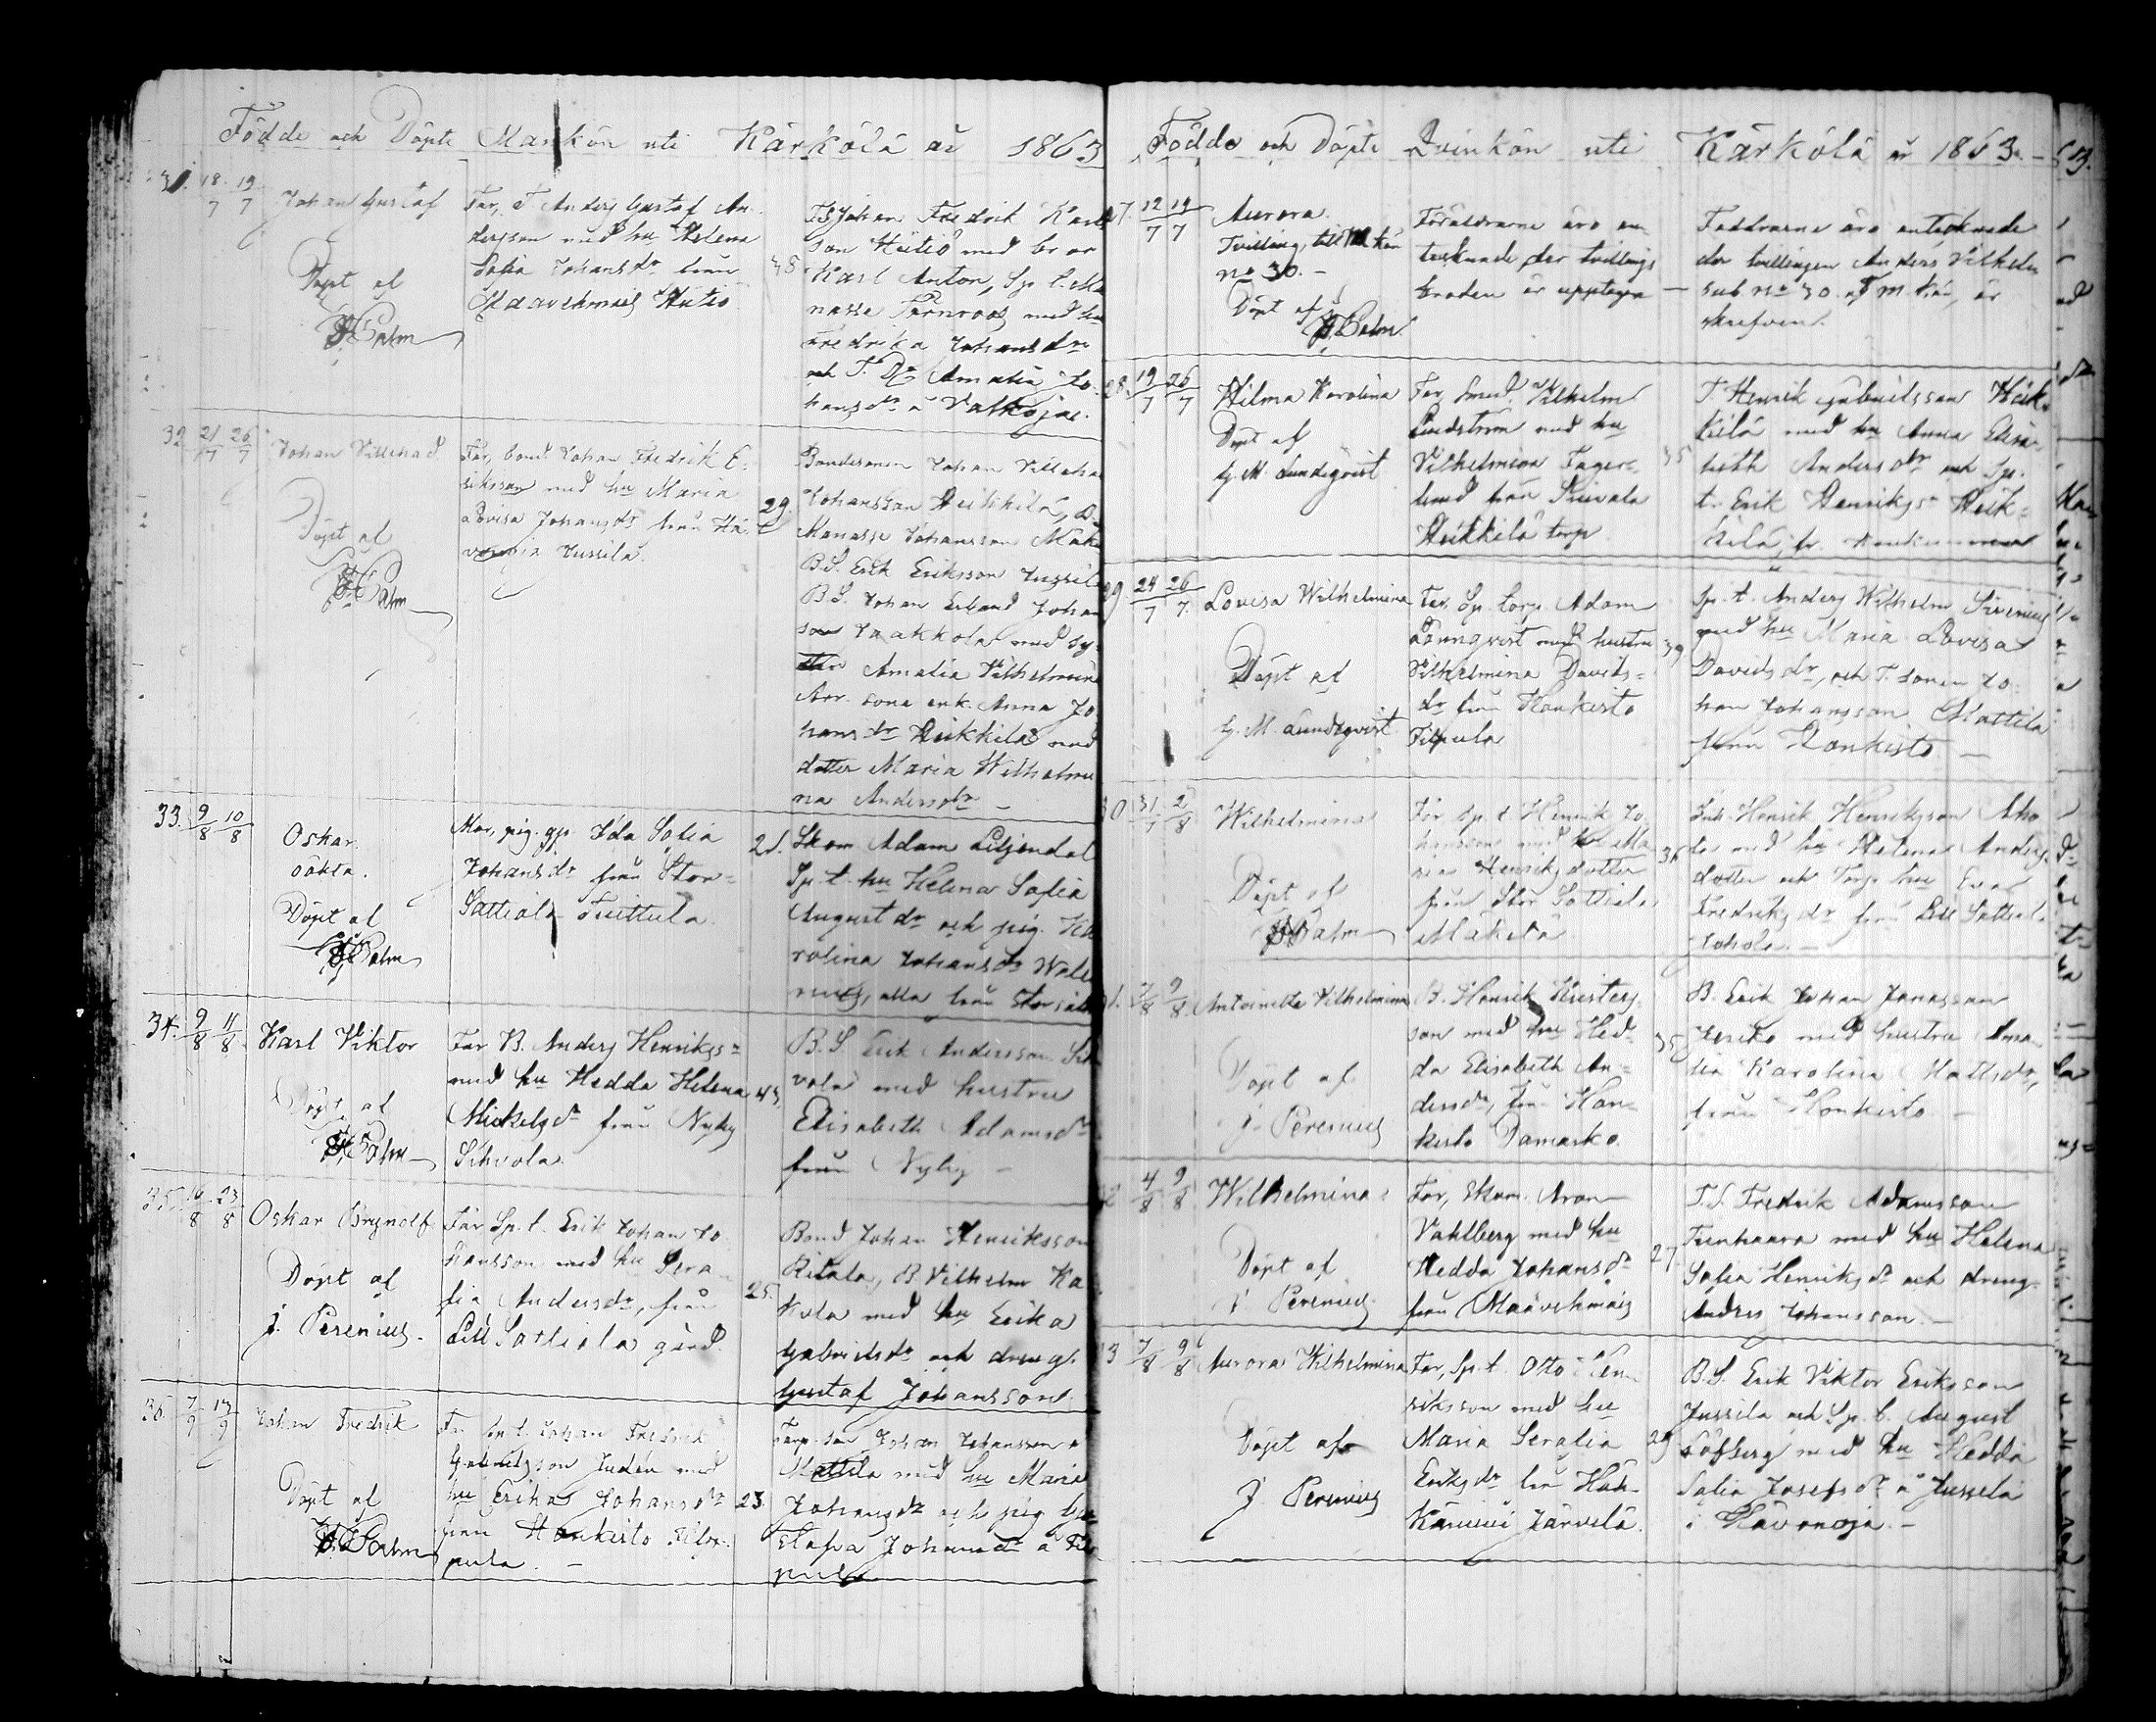 Födde och Döpte Mankön uti Kärkölä år 1863
31. 18/7 19/7
Johan Gustaf
Döpt af
Palm
Far, T. Anders Gustaf An-
dersson med hu Helena
Sofia Johansdr från
Maavehmais Hutio
38
TS Johan Fredrik Karls
son Hutio med bror
Karl Anton, Sp. t. Ma
nasse Törnroos med hu
Fredrika Johansdr
och T. Dr Amalia Jo-
hansdr å Valkojas.
32. 21/7 26/7
Johan Villehad
Döpt af
Palm
Far, bond. Johan Fredrik E-
riksson med hu Maria
Lovisa Johansdr från Hä-
Jussila.
29.
Bondesonen Johan Villeha
Johansson Heikkilä,
Manasse Johansson Mäke
B.S. Erik Eriksson Jussil
B.S. Johan Erland Johan
son Jaakkola med sy-
ster Amalia Vilhelmina
Arr. sone enk. Anna Jo
hansdr Heikkilä med
dotter Maria Wilhelmi
na Andersdr –
33. 9/8 10/8
Oskar
oäkta.
Döpt af
Palm
Mor, pig. gp. Ida Sofia
Johansdr från Stor=
Sattiala Tuittula.
21.
Skom. Adam Liljendal
Sp. t. hu Helena Sofia
Augustdr och pig. Ka
rolina Johansdr Wale
nius, alla från Stor
34. 9/8 11/8
Karl Viktor
Döpt af
Palm
Far B. Anders Henrikss=
med hu Hedda Helena
Mickelsdr från Nyby
Sihvola
43.
B.S. Erik Andersson Sih
vola med hustru
Elisabeth Adamsdr
från Nyby –
35. 16/8 23/8
Oskar Brynolf
Döpt af
J. Perenius.
Far Sp. t. Erik Johan Jo
hansson med hu Sera-
fia Andersdr, från
Lill Sattiala gård.
25.
Bond Johan Henriksson
Ritala, B. Vilhelm Ka
kola med hu Erika
Gabrielsdr och dreng.
Gustaf Johansson.
36. 7/9 13/9
Johan Fredrik
Döpt af
Palm
Far Sp. t. Johan Fredrik
Gabrielsson Judén med
hu Erika Johansdr
från Honkisto Filp-
pula. –
23.
Torp. son Johan Johansson
Mattila med hu Maria
Johansdr och pig Gu
stafva Johansdr å Fil
pula
Födde och Döpte Qvinkön uti Kärkölä år 1863. –
27. 12/7 19/7
Aurora.
Tvilling till M. kön
No 30. –
Döpt af
Palm
Föräldrarne äro an
tecknade der tvillings
broden är upptagen –
Faddrarne äro antecknade
der tvillingen Anders Vilhelm
sub No 30. af m. kön, är
skrefven.
28. 19/7 26/7
Hilma Karolina
Döpt af
G. M. Lundeqvist
Far, Smed. Vilhelm
Lindström med hu
Vilhelmina Fager=
lund från
Heikkilä torp
35
T. Henrik Gabrielsson Heik-
kilä med hu Anna Elisa-
beth Andersdr och Sp.
t. Erik Henrikss= Heik=
kilä, fr.
29 24/7 26/7
Lovisa Wilhelmina
Döpt af
G. M. Lundeqvist
Far, Sp. torp. Adam
Lönnqvist med hustru
Vilhelmina Davids=
dr från Honkisto
Filpula
39
Sp. t. Anders Wilhelm Sirenius
med hu Maria Lovisa
Davidsdr, och T. sonen Jo-
han Johansson Mattila
från Honkisto –
30 31/7 2/8
Wilhelmina
Döpt af
Palm
Far Sp. t. Henrik Jo
hansson med hu Ma
ria Henriksdotter
från Stor Sattiala
Mäkelä
36
Inh. Henrik Henriksson Aho
la med hu Helena Anders-
dotter och Torp. hu Eva
Fredriksdr från Lill Sattiala
Johola. –
31. 7/8 9/8
Antoinetta Vilhelmina
Döpt af
J. Perenius
B. Henrik Kristers
son med hu Hed-
da Elisabeth An=
dersdr, från Hon-
kisto Damasko.
35
B. Erik Johan Jonasson
Jeriko med hustru Ama-
lia Karolina Mattsdr,
från Honkisto –
32 4/8 9/8
Wilhelmina
Döpt af
J. Perenius.
Far, Skom. Aron
Vahlberg med hu
Hedda Johansdr
från Maavehmais
27
T.S. Fredrik Adamsson
med hu Helena
Sofia Henriksdr och dreng-
Anders Johansson. –
33 7/8 9/8
Aurora Wilhelmina
Döpt af
J. Perenius
Far, Sp. t. Otto Hen
riksson med hu
Maria Serafia
Eriksdr från Huh-
Järvelä.
29
B.S. Erik Viktor Eriksson
Jussila och Sp. t. August
Löfberg med hu Hedda
Sofia Josefsdr å Jussila
i Hävonoja. –